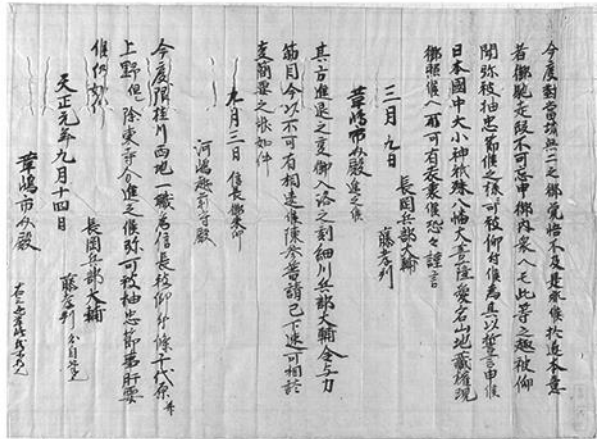 今度對當城無二之御覚悟不及是非候於近本意
者御馳走段不可忘申御内衆へも此等之趣被仰
聞弥被抽忠節候之様可被仰付候為其以誓言申候
日本國中大小神祇殊八幡大菩薩愛宕山地蔵権現
御照候へ聊可有表裏候恐々謹言
三月九日 長岡兵部大輔
藤孝判
革嶋市介殿進之候
其方進退之事御入洛之刻細川兵部大輔令与力
筋目今以不可有相違候陳参普請已下速可相談
事簡要之状如件
九月三日 信長御朱印
河嶋越前守殿
今度限桂川西地一職為信長被仰付候条下代原并
上野但除東寺分進之候弥可被抽忠節事肝要
候仍如件
天正元年九月十四日 長岡兵部大輔
藤孝判
革嶋市介殿